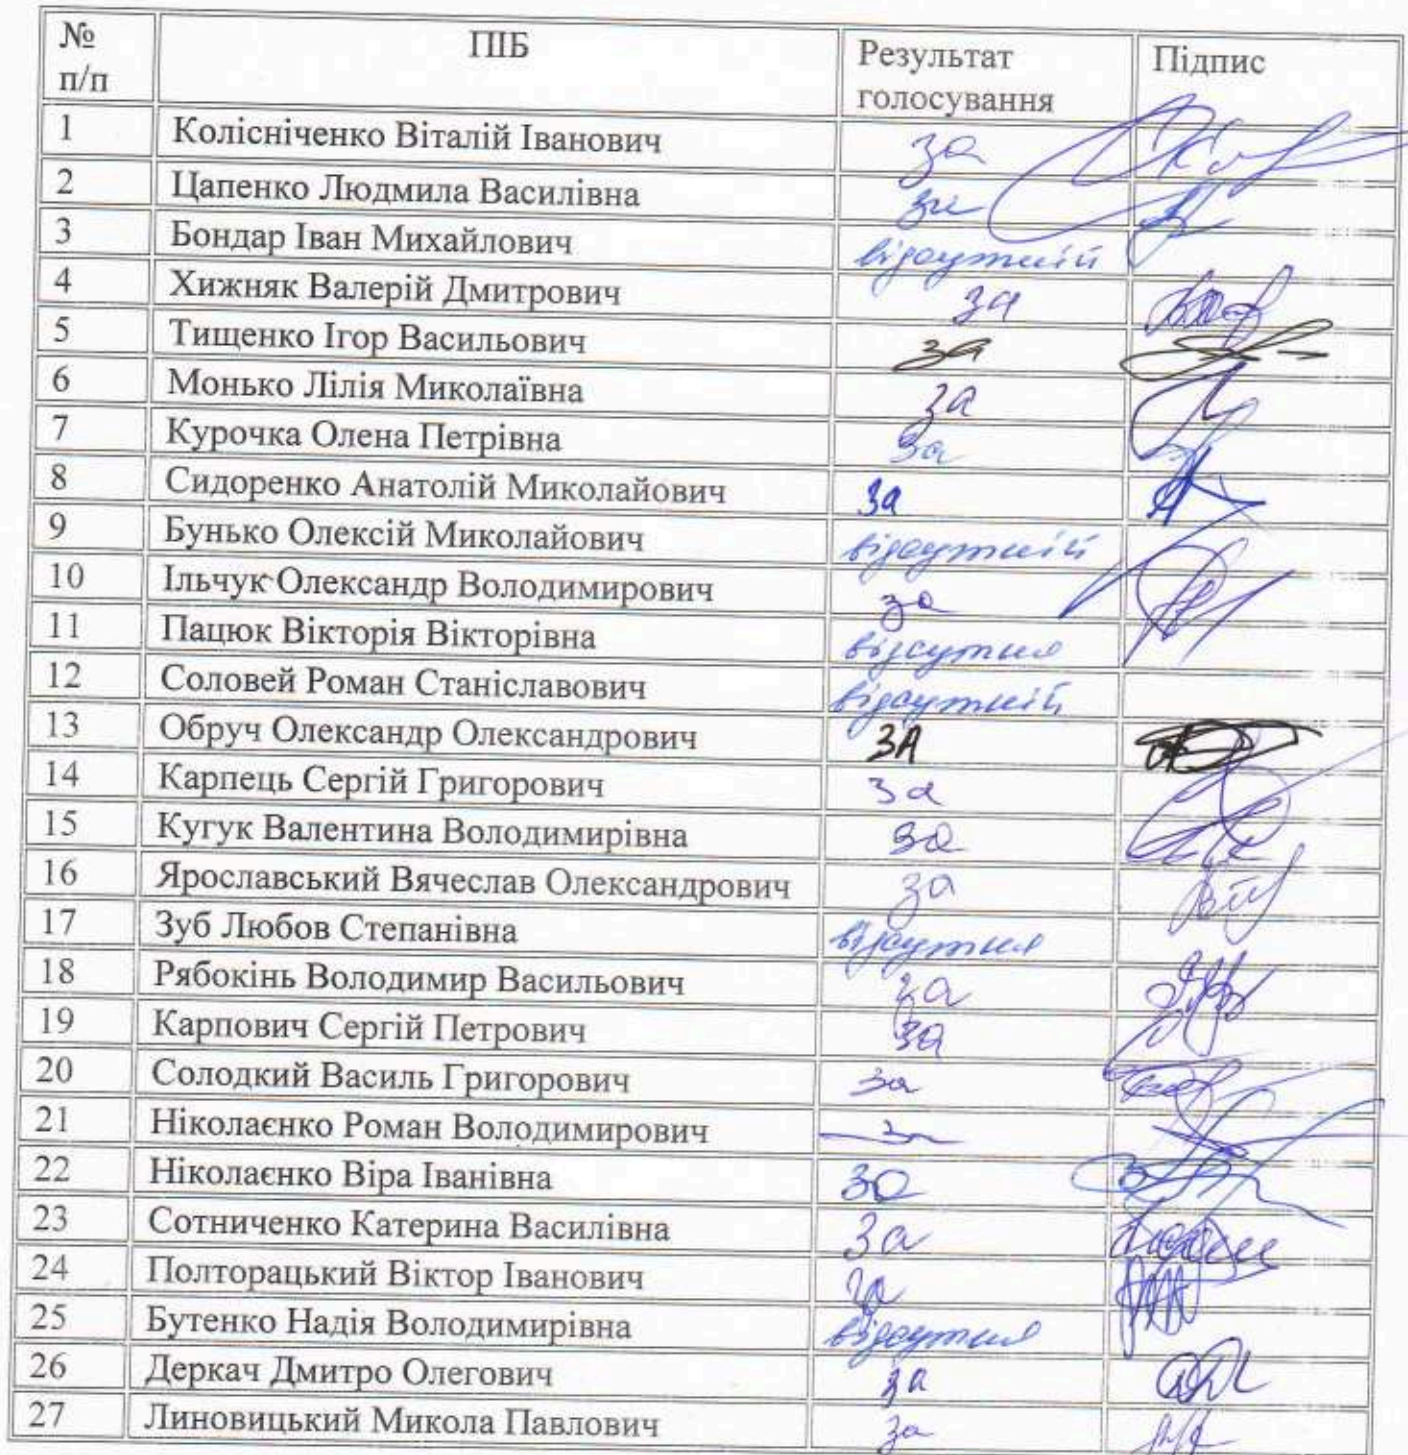 № п/п ПІБ Результат голосування Підпис
1 Колісніченко Віталій Іванович за
2 Цапенко Людмила Василівна за
3 Бондар Іван Михайлович відсутній
4 Хижняк Валерій Дмитрович за
5 Тищенко Ігор Васильович за
6 Монько Лілія Миколаївна за
7 Курочка Олена Петрівна за
8 Сидоренко Анатолій Миколайович за
9 Бунько Олексій Миколайович відсутній
10 Ільчук Олександр Володимирович за
11 Пацюк Вікторія Вікторівна відсутня
12 Соловей Роман Станіславович відсутній
13 Обруч Олександр Олександрович ЗА
14 Карпець Сергій Григорович за
15 Кугук Валентина Володимирівна за
16 Ярославський Вячеслав Олександрович за
17 Зуб Любов Степанівна відсутня
18 Рябокінь Володимир Васильович за
19 Карпович Сергій Петрович за
20 Солодкий Василь Григорович за
21 Ніколаєнко Роман Володимирович за
22 Ніколаєнко Віра Іванівна за
23 Сотниченко Катерина Василівна за
24 Полторацький Віктор Іванович за
25 Бутенко Надія Володимирівна відсутня
26 Деркач Дмитро Олегович за
27 Линовицький Микола Павлович за